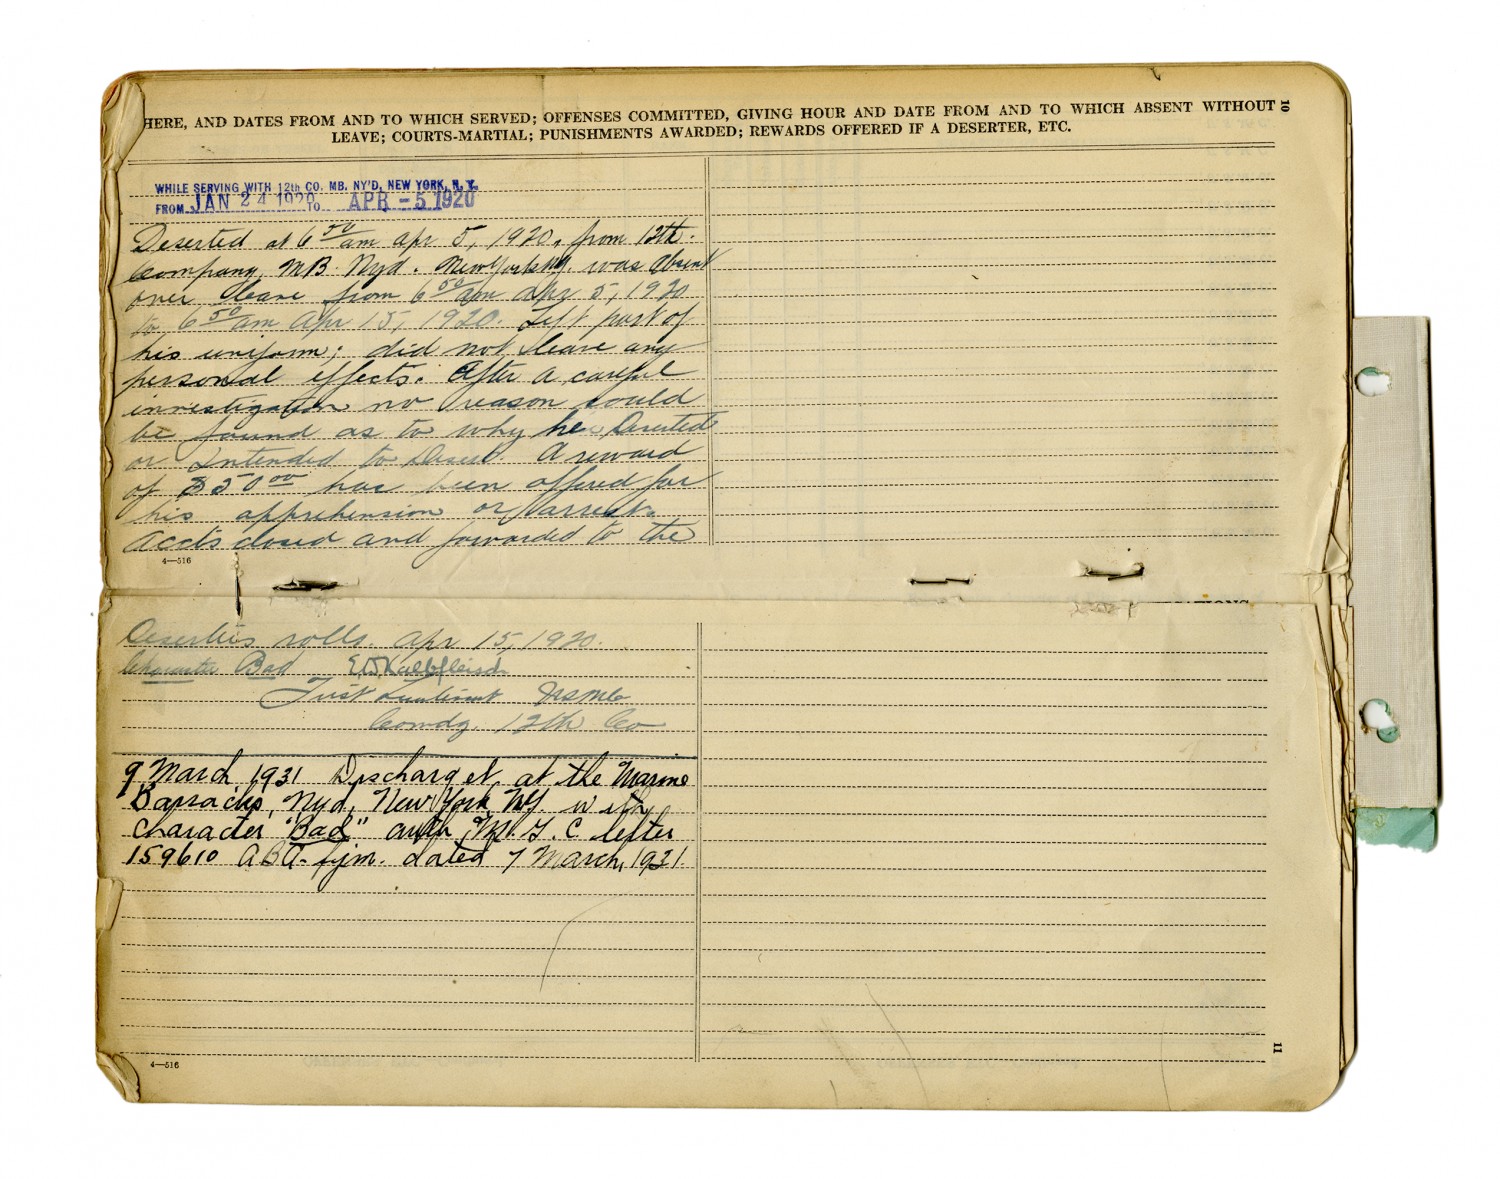 HERE, AND DATES FROM AND TO WHICH SERVED; OFFENSES COMMITTED, GIVING HOUR AND DATE FROM AND TO WHICH ABSENT WITHOUT
LEAVE; COURTS-MARTIAL; PUNISHMENTS AWARDED; REWARDS OFFERED IF A DESERTER, ETC.
10
WHILE SERVING WITH 12th CO. MB. NY'D, NEW YORK, N. Y.
FROM JAN 24 1920 TO APR -5 1920
Deserted at 6 50 am apr 5, 1920, from 12th
Company, MB. Nyd. New York NY. was absent
over leave from 6 50 am apr 5, 1920
to 6 50 am apr 15, 1920. Left part of
his uniform; did not leave any
personal effects. After a careful
investigation no reason could
be found as to why he Deserted
or Intended to Desert. A reward
of $50 00 has been offered for
his apprehension or arrest.
Accts closed and forwarded to the
4—516
rolls. apr 15, 1920.
Character Bad E.D. Kalbfleisch
First Lieutenant USMC
Comdg. 12th Co
9 March 1931 Discharged at the Marine
Barracks, Nyd, New York, NY. with
character "Bad" auth M.G.C letter
159610 ABA- fjm. dated 7 March, 1931
4—516
11